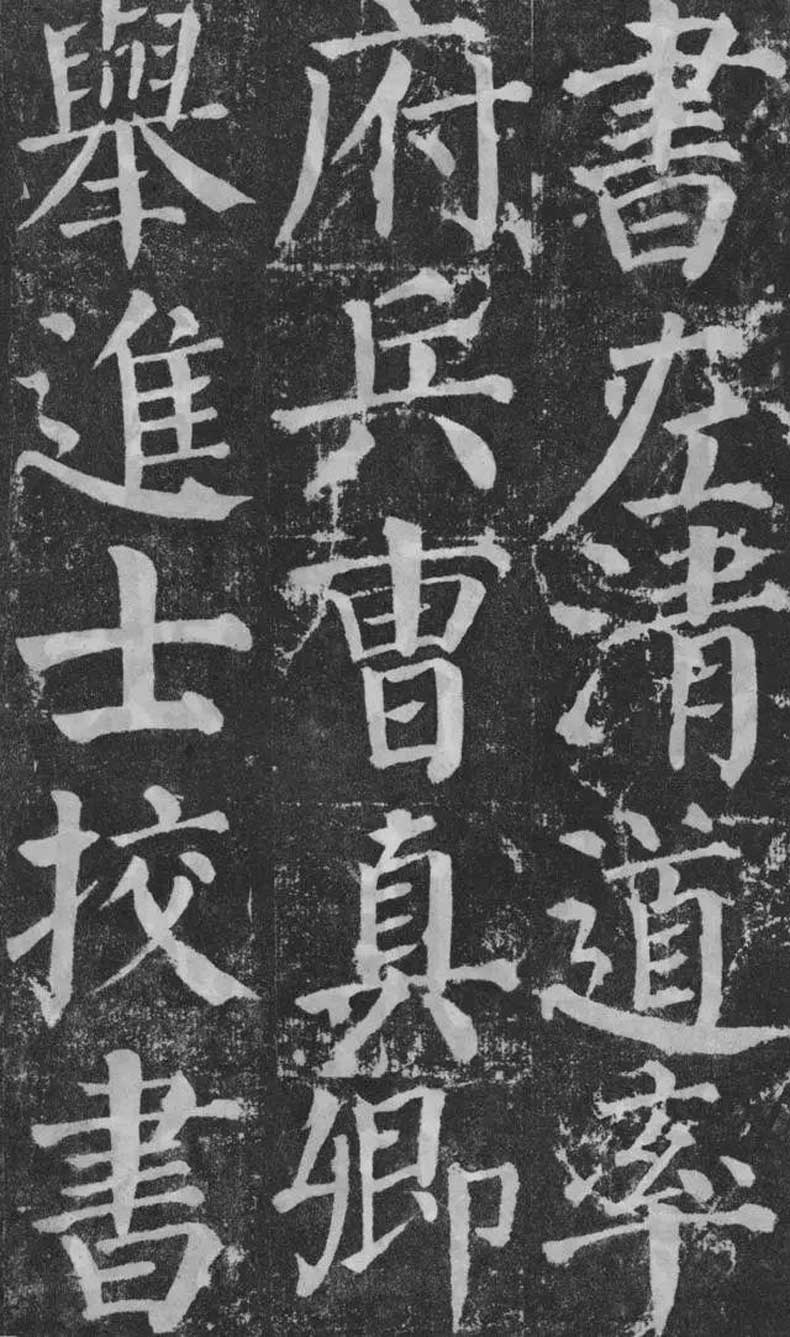 書左清道率
府兵曺真卿
舉進士挍書